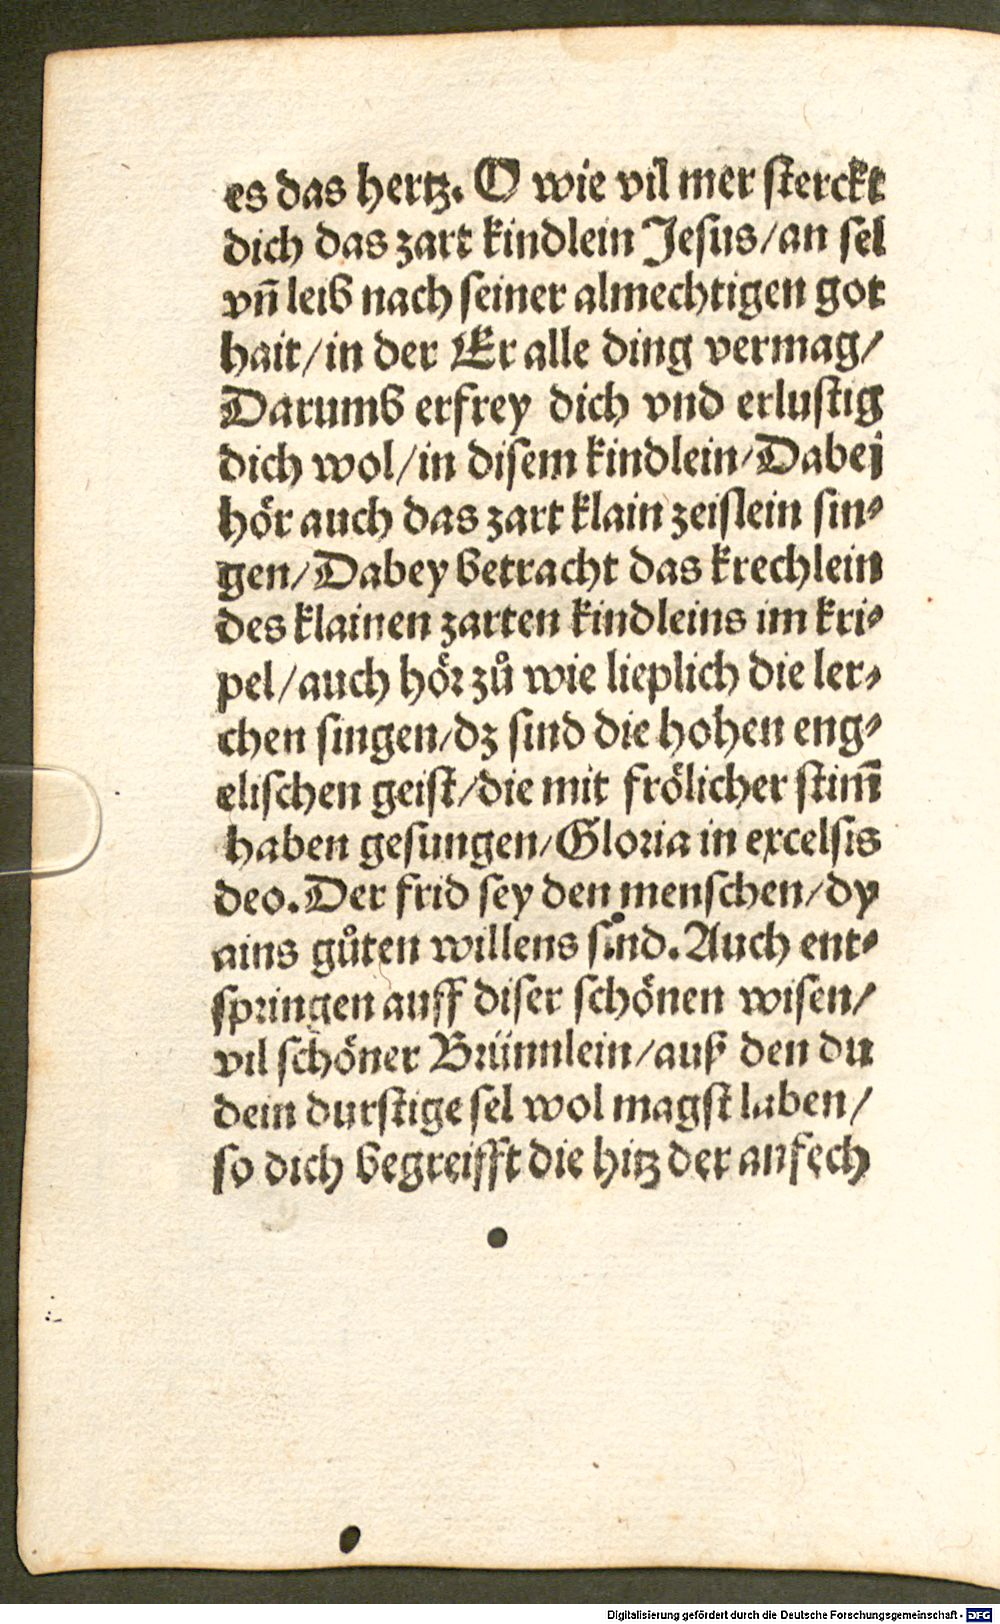 es das hertz. O wie vil mer sterckt
dich das zart kindlein Jesus/an sel
vñ leib nach seiner almechtigen got
hait/in der Er alle ding vermag/
Darumb erfrey dich vnd erlustig
dich wol/in disem kindlein/Dabej
hör auch das zart klain zeislein sin⸗
gen/Dabey betracht das krechlein
des klainen zarten kindleins im kri⸗
pel/auch hör zů wie lieplich die ler⸗
chen singen/dz sind die hohen eng⸗
elischen geist/die mit frölicher stim̃
haben gesungen/Gloria in excelsis
deo. Der frid sey den menschen/dy
ains gůten willens sind. Auch ent⸗
springen auff diser schönen wisen/
vil schöner Brünnlein/auß den du
dein durstige sel wol magst laben/
so dich begreifft die hitz der anfech
Digitalisierung gefördert durch die Deutsche Forschungsgemeinschaft - DFG